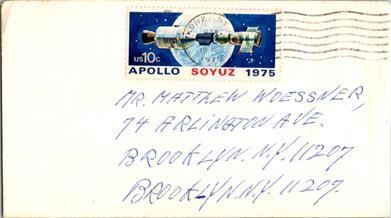 US 10c
APOLLO SOYUZ 1975
MR. MATTHEW WOESSNER,
74 ARLINGTON AVE.
BROOKLYN. N.Y. 11207
BROOKLYN. N.Y. 11207.